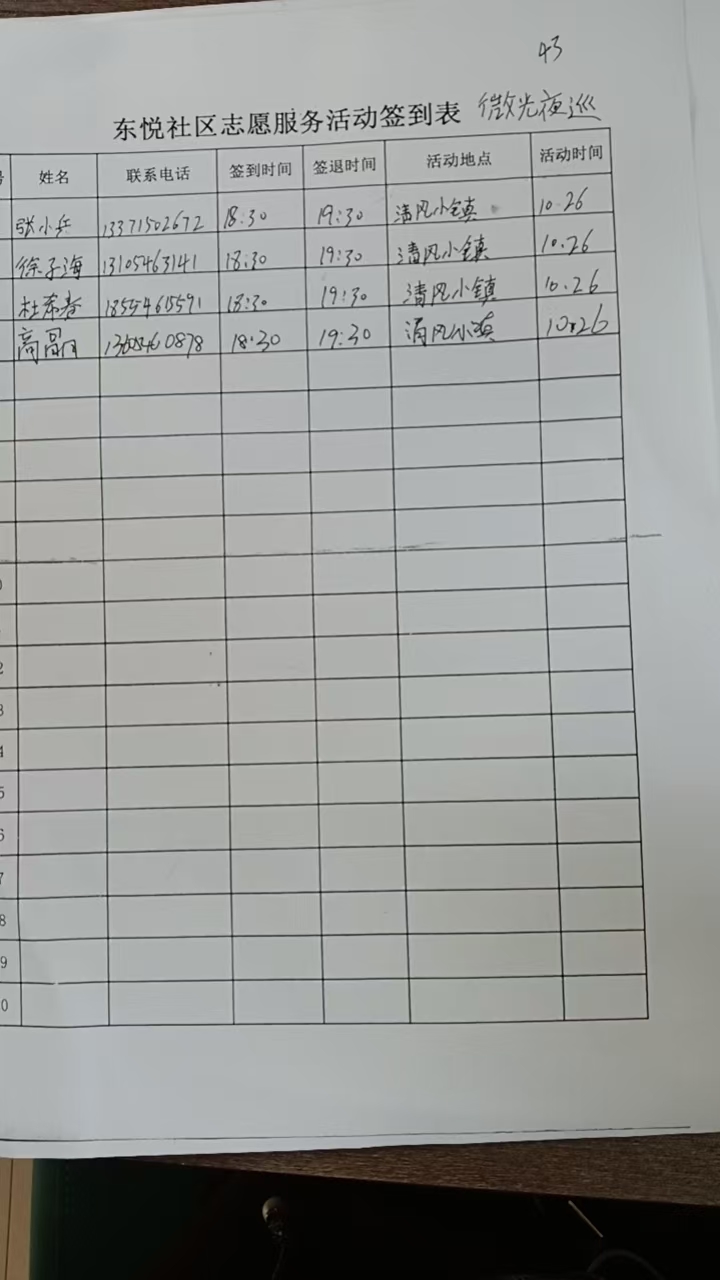 43
东悦社区志愿服务活动签到表 微光夜巡
号 姓名 联系电话 签到时间 签退时间 活动地点 活动时间
张小兵 13371502672 18:30 19:30 清风小镇 10.26
徐子海 13105463141 18:30 19:30 清风小镇 10.26
杜希春 18554615591 18:30 19:30 清风小镇 10.26
高 18:30 19:30 清风小镇 10.26
0
2
3
4
5
6
7
8
9
0